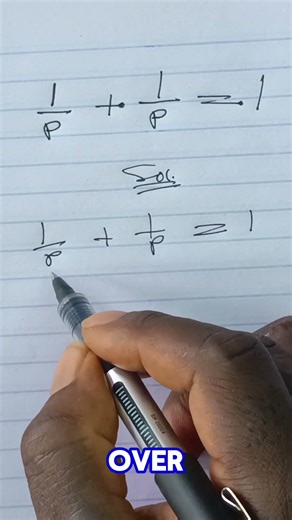 1/p + 1/p = 1
Soln.
1/p + 1/p = 1
OVER